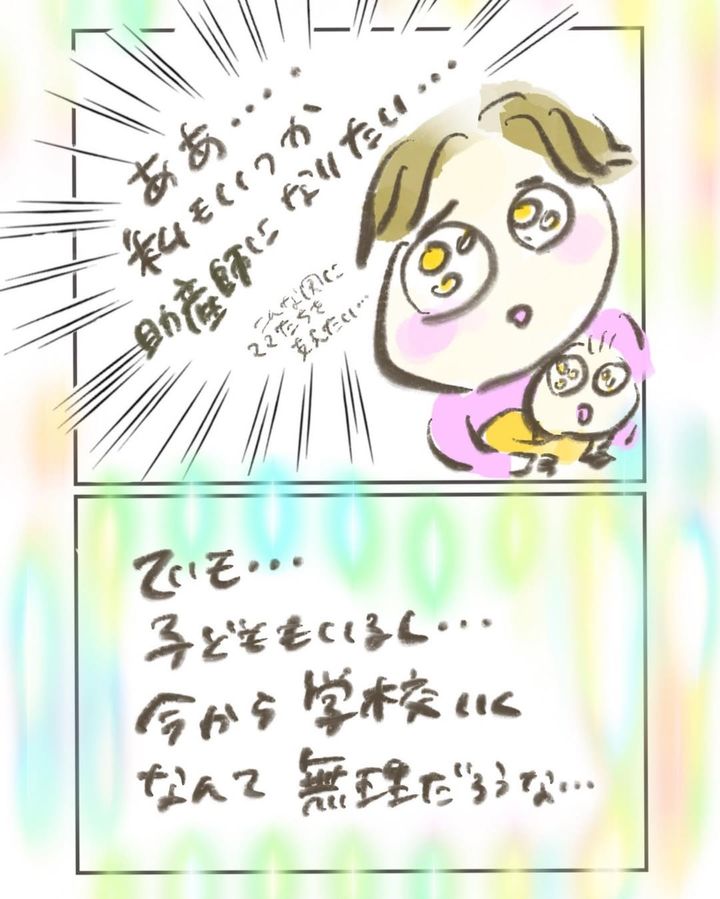 ああ・・・・
私もいつか
助産師になりたい・・・
こんな風に
ママたちを
支えたい…
でも・・・
子どももいるし・・・
今から学校いく
なんて無理だろうな…